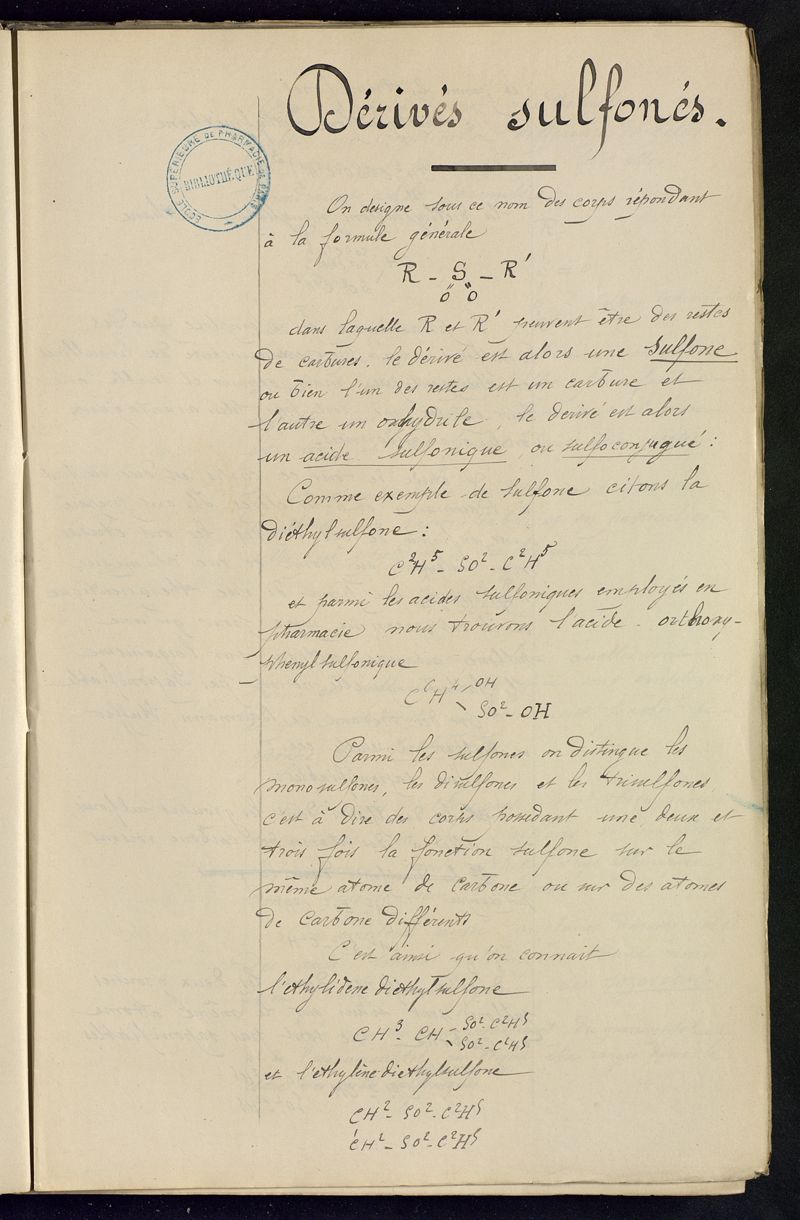 Dérivés sulfonés.
ECOLE SUPÉRIEURE DE PHARMACIE DE PARIS
BIBLIOTHÈQUE
On designe sous ce nom des corps répondant
à la formule générale
R - S - R'
O O
dans laquelle R et R' peuvent être des restes
de carbures. le dérivé est alors une Sulfone
ou bien l'un des restes est un carbure et
l'autre un oxhydrile, le dérivé est alors
un acide sulfonique, ou sulfoconjugué :
Comme exemple de sulfone citons la
diéthylsulfone :
C²H⁵ - SO² - C²H⁵
et parmi les acides sulfoniques employés en
pharmacie nous trouvons l'acide orthoxy-
phenylsulfonique
C⁶H⁴ - OH
SO² - OH
Parmi les sulfones on distingue les
monosulfones, les disulfones et les trisulfones
c'est à dire des corps possedant une, deux et
trois fois la fonction sulfone sur le
même atome de carbone ou sur des atomes
de carbone différents
C'est ainsi qu'on connait
l'ethylidene diethylsulfone
CH³ - CH - SO² - C²H⁵
SO² - C²H⁵
et l'ethylène diethylsulfone
CH² - SO² - C²H⁵
CH² - SO² - C²H⁵